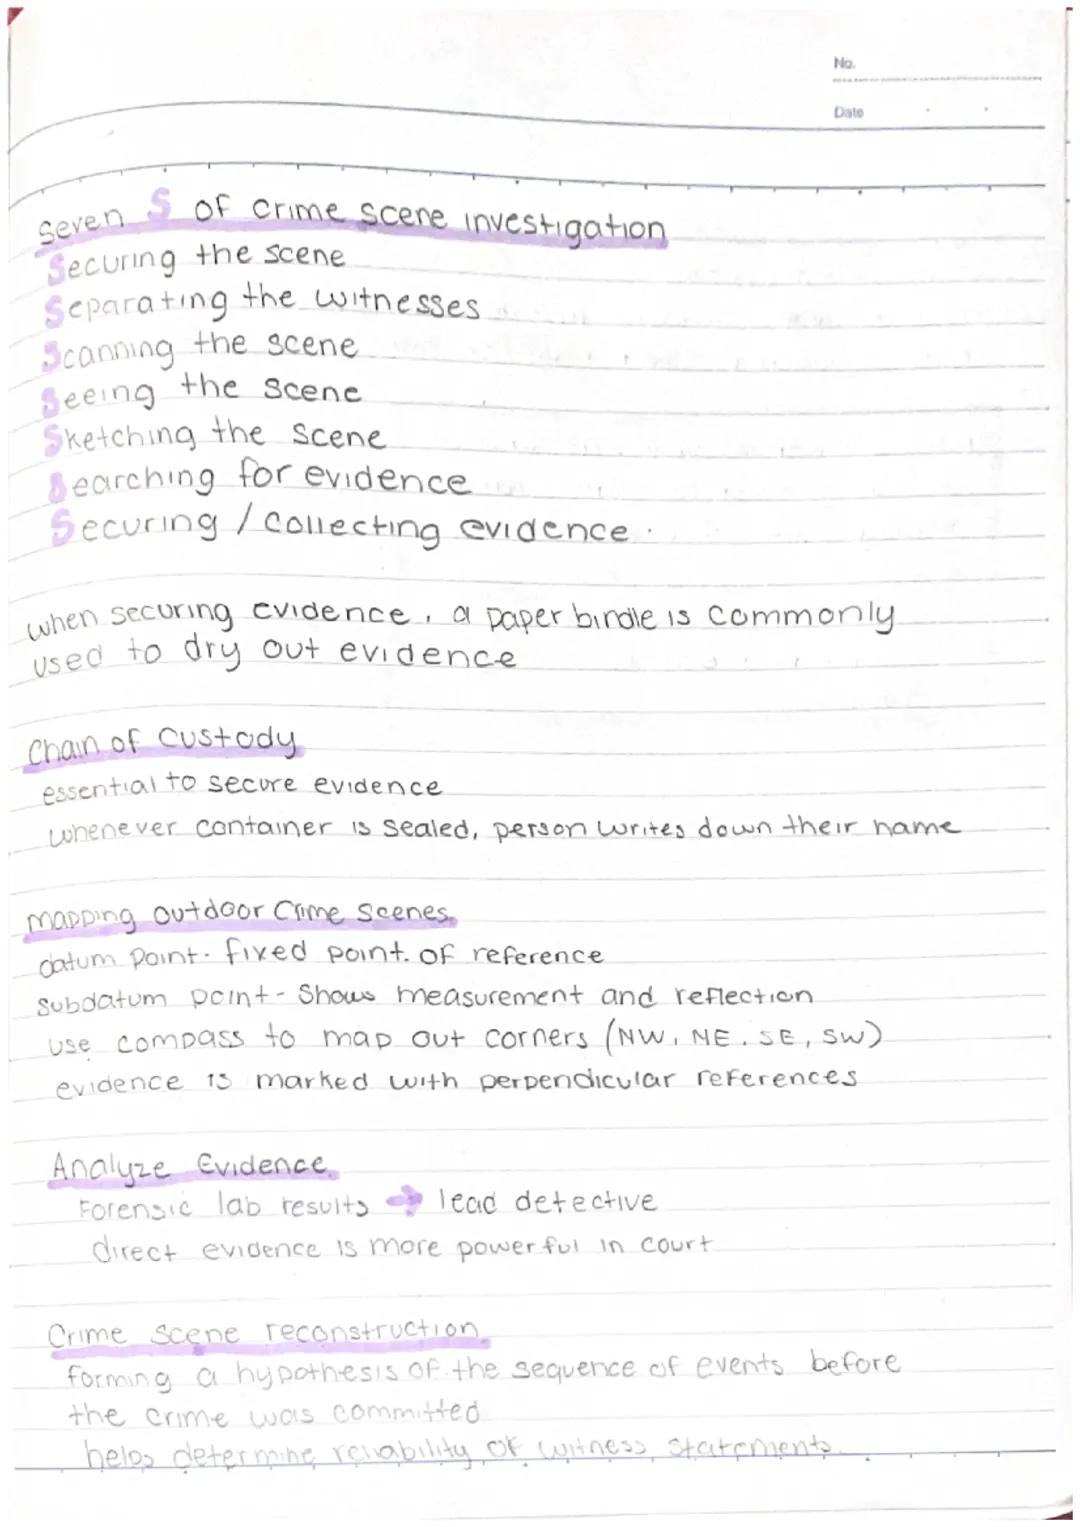 No.
Date
Seven S of crime scene investigation
Securing the scene
Separating the witnesses
Scanning the scene
Seeing the scene
Sketching the scene
Searching for evidence
Securing / collecting evidence.
when securing evidence, a paper bindle is commonly
used to dry out evidence
Chain of custody
essential to secure evidence
whenever container is sealed, person writes down their name
mapping outdoor Crime Scenes
datum point - fixed point of reference
subdatum point - Shows measurement and reflection
use compass to map out corners (NW, NE, SE, SW)
evidence is marked with perpendicular references
Analyze Evidence
Forensic lab results → lead detective
direct evidence is more powerful in court
Crime scene reconstruction
forming a hypothesis of the sequence of events before
the crime was committed
helps determine reliability of witness statements